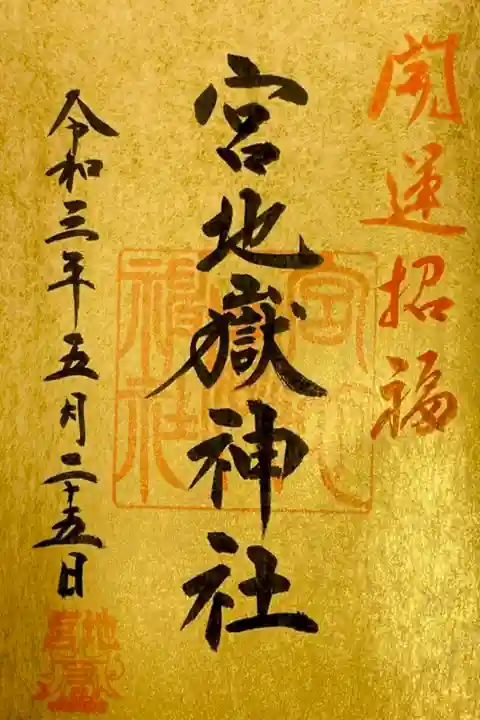 開運招福
宮地嶽神社
令和三年五月二十五日